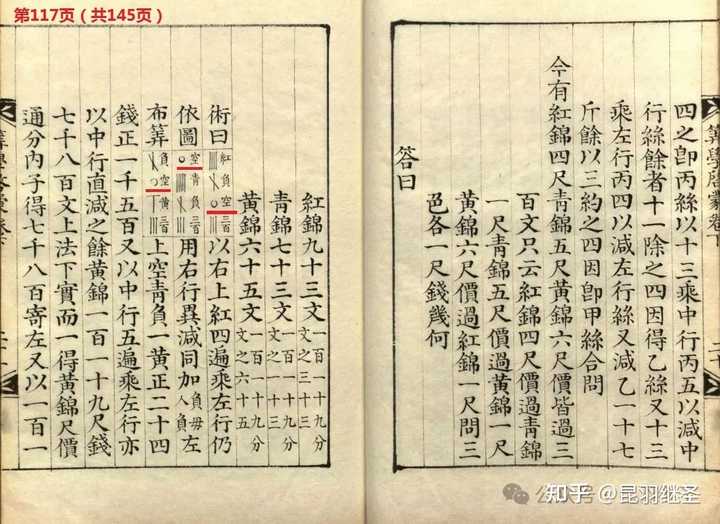 第117页（共145页）
四之卽丙絲以十三乘中行丙五以減中
行絲餘者十一除之四因得乙絲又十三
乘左行丙四以減左行絲又減乙一十七
斤餘以三約之四因卽甲絲合問
今有紅錦四尺靑錦五尺黃錦六尺價皆過三
百文只云紅錦四尺價過靑錦
一尺靑錦五尺價過黃錦一尺
黃錦六尺價過紅錦一尺問三
色各一尺錢幾何
答曰
紅錦九十三文一百一十九分文之三十三
靑錦七十三文一百一十九分文之十三
黃錦六十五文一百一十九分文之六十五
術曰紅負空三百以右上紅四遍乘左行仍
依圖空靑負三百用右行異減同加左
布筭負空黃三百上空靑負一黃正二十四
錢正一千五百又以中行五遍乘左行亦
以中行直減之餘黃錦一百一十九尺錢
七千八百文上法下實而一得黃錦尺價
通分內子得七千八百寄左又以一百一
知乎 @昆羽继圣